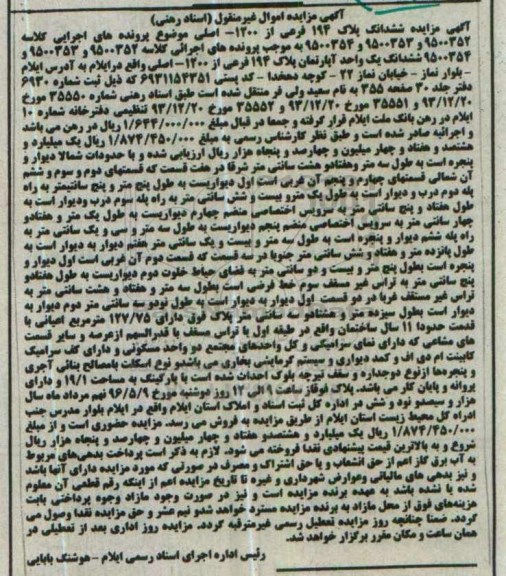 آگهی مزایده اموال غیرمنقول (اسناد رهنی)
آگهی مزایده ششدانگ پلاک ۱۹۴ فرعی از ۱۲۰۰- اصلی موضوع پرونده های اجرایی کلاسه
۹۵۰۰۳۵۲ و ۹۵۰۰۳۵۳ و ۹۵۰۰۳۵۴ به موجب پرونده های اجرائی کلاسه ۹۵۰۰۳۵۲ و ۹۵۰۰۳۵۳ و
۹۵۰۰۳۵۴ ششدانگ یک واحد آپارتمان پلاک ۱۹۴ فرعی از ۱۲۰۰- اصلی واقع درایلام به آدرس ایلام
- بلوار نماز - خیابان نماز ۲۲ - کوچه دهخدا - کد پستی ۶۹۳۱۱۵۴۳۵۱ که ذیل ثبت شماره ۶۹۳۰
دفتر جلد ۳۰ صفحه ۳۵۵ به نام سعید ولی فر منتقل شده است طبق اسناد رهنی شماره ۳۵۵۵۰ مورخ
۹۳/۱۲/۲۰ و ۳۵۵۵۱ مورخ ۹۳/۱۲/۲۰ و ۳۵۵۵۲ مورخ ۹۳/۱۲/۲۰ تنظیمی دفترخانه شماره ۱۰
ایلام در رهن بانک ملت ایلام قرار گرفته و جمعا در قبال مبلغ ۱/۶۴۴/۰۰۰/۰۰۰ ریال در رهن می باشد
و اجرائیه صادر شده است و طبق نظر کارشناس رسمی به مبلغ ۱/۸۷۴/۴۵۰/۰۰۰ ریال یک میلیارد و
هشتصد و هفتاد و چهار میلیون و چهارصد و پنجاه هزار ریال ارزیابی شده و با حدودات شمالا دیوار و
پنجره است به طول سه متر وهفتادو هشت سانتی متر شرقا در هفت قسمت که قسمتهای دوم و سوم و ششم
آن شمالی قسمتهای چهارم و پنجم آن غربی است اول دیواریست به طول پنج متر و پنج سانتیمتر به راه
پله دوم درب و دیوار است به طول یک مترو بیست و شش سانتی متر به راه پله سوم درب ودیوار است به
طول هفتاد و پنج سانتی متر به سرویس اختصاصی منضم چهارم دیواریست به طول یک متر و هفتادو
چهار سانتی متر به سرویس اختصاصی منضم پنجم دیواریست به طول سه متر و سی و یک سانتی متر به
راه پله ششم دیوار و پنجره است به طول سه متر و بیست و یک سانتی متر هفتم دیوار به دیوار است به
طول پانزده متر و هفتاد و شش سانتی متر جنوبا در سه قسمت که قسمت دوم آن غربی است اول دیوار و
پنجره است بطول پنج متر و بیست و دو سانتی متر به فضای حیاط خلوت دوم دیواریست به طول هفتادو
پنج سانتی متر به تراس غیر مسقف سوم خط فرضی است بطول سه متر و هفتاد و هشت سانتی متر به
تراس غیر مسقف غربا در دو قسمت اول دیوار به دیوار است به طول نودوسه سانتی متر دوم دیوار به
دیوار است بطول سیزده متر و هشتادو سه سانتی متر پلاک فوق دارای ۱۲۷/۷۵ مترمربع اعیانی با
قدمت حدودا ۱۱ سال ساختمان واقع در طبقه اول با تراس مسقف با قدرالسهم ازعرصه و سایر قسمت
های مشاعی که دارای نمای سرامیکی و کل واحدهای مجتمع دو واحد مسکونی و دارای کف سرامیک
کابینت ام دی اف و کمد دیواری و سیستم گرمایشی بخاری می باشدو نوع اسکلت بامصالح بنائی آجری
و پنجره‌ها ازنوع دوجداره و سقف تیرچه بلوک احداث شده است با پارکینگ به مساحت ۱۹/۱ و دارای
پروانه و پایان کار می باشد. پلاک فوقاز ساعت ۹ الی ۱۲ روز دوشنبه مورخ ۹۶/۵/۹ نهم مرداد ماه سال
هزار و سیصدو نود و شش در اداره کل ثبت اسناد و املاک استان ایلام واقع در ایلام بلوار مدرس جنب
ادراه کل محیط زیست استان ایلام از طریق مزایده به فروش می رسد. مزایده حضوری است و از مبلغ
۱/۸۷۴/۴۵۰/۰۰۰ ریال یک میلیارد و هشتصدو هفتاد و چهار میلیون و چهارصد و پنجاه هزار ریال
شروع و به بالاترین قیمت پیشنهادی نقدا فروخته می شود. لازم به ذکر است پرداخت بدهی‌های مربوط
به آب برق گاز اعم از حق انشعاب و یا حق اشتراک و مصرف در صورتی که مورد مزایده دارای آنها باشد
و نیز بدهی های مالیاتی وعوارض شهرداری و غیره تا تاریخ مزایده اعم از اینکه رقم قطعی آن معلوم
شده یا نشده باشد به عهده برنده مزایده است و نیز در صورت وجود مازاد وجوه پرداختی بابت
هزینه‌های فوق از محل مازاد به برنده مزایده مسترد خواهد شدو نیم عشر و حق مزایده نقدا وصول می
گردد. ضمنا چنانچه روز مزایده تعطیل رسمی غیرمترقبه گردد. مزایده روز اداری بعد از تعطیلی در
همان ساعت و مکان مقرر برگزار خواهد شد.
رئیس اداره اجرای اسناد رسمی ایلام - هوشنگ بابایی